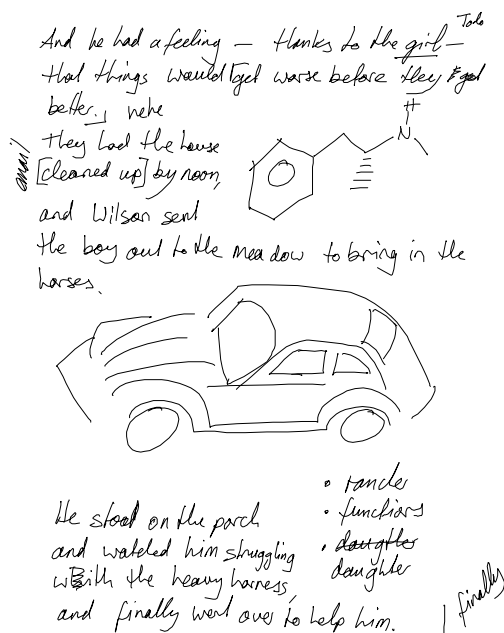 Todo
And he had a feeling — thanks to the girl —
that things would get worse before they get
better. hehe
They had the house
email
[cleaned up] by noon,
and Wilson sent
the boy out to the meadow to bring in the
horses.
H
N
• rancher
• functions
• daughter
daughter
He stood on the porch
and watched him struggling
with the heavy harness,
and finally went over to help him.
finally